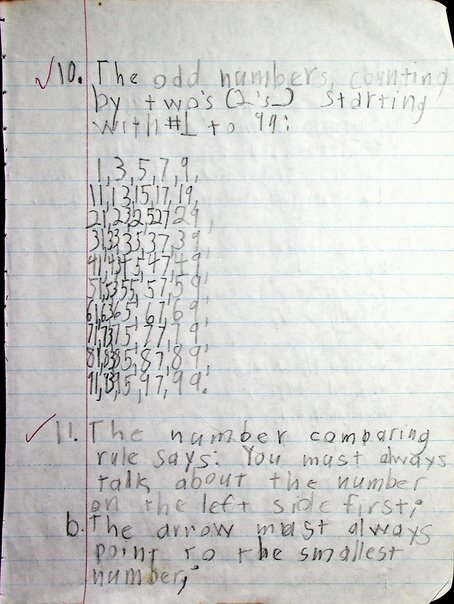 10. The odd numbers, counting
by two's (2's) starting
with #1 to 99:
1, 3, 5, 7, 9,
11, 13, 15, 17, 19,
21, 23, 25, 27, 29,
31, 33, 35, 37, 39,
41, 43, 45, 47, 49,
51, 53, 55, 57, 59,
61, 63, 65, 67, 69,
71, 73, 75, 77, 79,
81, 83, 85, 87, 89,
91, 93, 95, 97, 99.
11. The number comparing
rule says: You must always
talk about the number
on the left side first;
b. The arrow must always
point to the smallest
number;